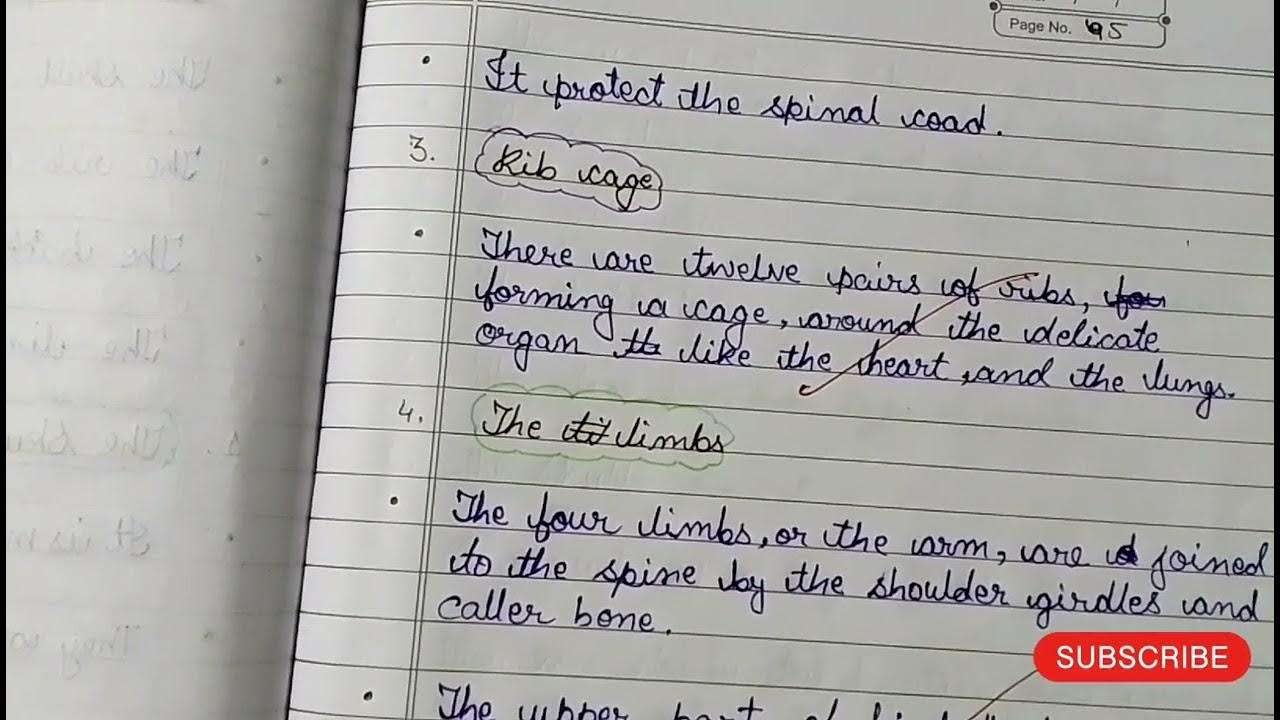 Page No. 95
It protect the spinal coad.
3. Rib cage
There are twelve pairs of ribs,
forming a cage, around the delicate
organ like the heart, and the lungs.
4. The limbs
The four limbs, or the arm, are joined
to the spine by the shoulder girdles and
caller bone.
SUBSCRIBE
The upper part of